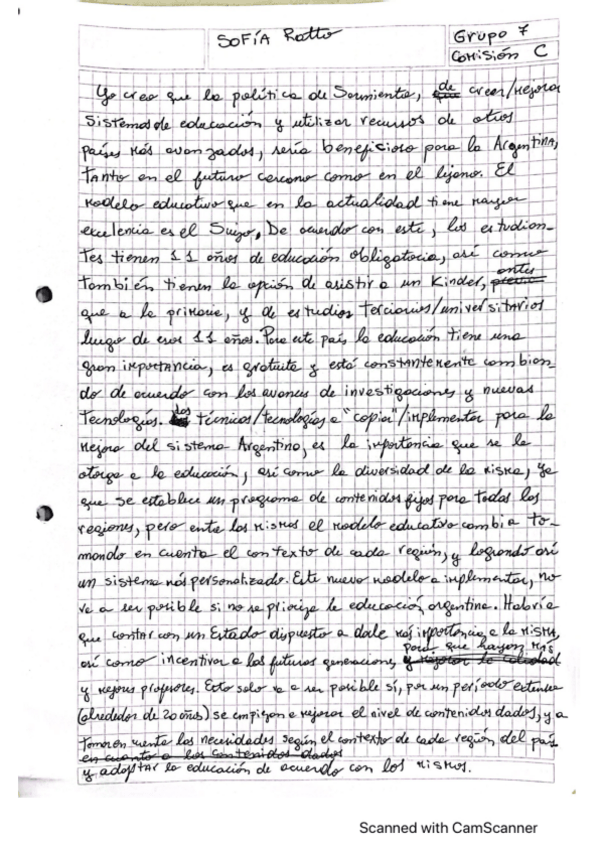 SOFÍA Ratto
Grupo 7
COMISIÓN C
Yo creo que la política de Sarmiento, de crear/mejorar
sistemas de educación y utilizar recursos de otros
países más avanzados, sería beneficioso para la Argentina,
tanto en el futuro cercano como en el lejano. El
modelo educativo que en la actualidad tiene mayor
excelencia es el Suizo, De acuerdo con este, los estudian-
tes tienen 11 años de educación obligatoria, así como
también tienen la opción de asistir a un Kinder, antes
que a la primaria, y de estudios terciarios/universitarios
luego de esos 11 años. Para este país la educación tiene una
gran importancia, es gratuita y está constantemente cambian-
do de acuerdo con los avances de investigaciones y nuevas
tecnologías. Las técnicas/tecnologías a "copiar"/implementar para la
mejora del sistema Argentino, es la importancia que se le
otorga a la educación, así como la diversidad de la misma, ya
que se establece un programa de contenidos fijos para todas las
regiones, pero entre las mismas el modelo educativo cambia to-
mando en cuenta el contexto de cada región, y logrando así
un sistema más personalizado. Este nuevo modelo a implementar, no
va a ser posible si no se prioriza la educación argentina. Habría
que contar con un Estado dispuesto a dale más importancia a la misma,
así como incentivar a las futuras generaciones, para que hayan más
y mejores profesores. Esto solo va a ser posible sí, por un período extenso
(alrededor de 20 años) se empiezan a mejorar el nivel de contenidos dados, y a
tomar en cuenta las necesidades según el contexto de cada región del país
en cuanto a los contenidos dados
y adaptar la educación de acuerdo con los mismos.
Scanned with CamScanner